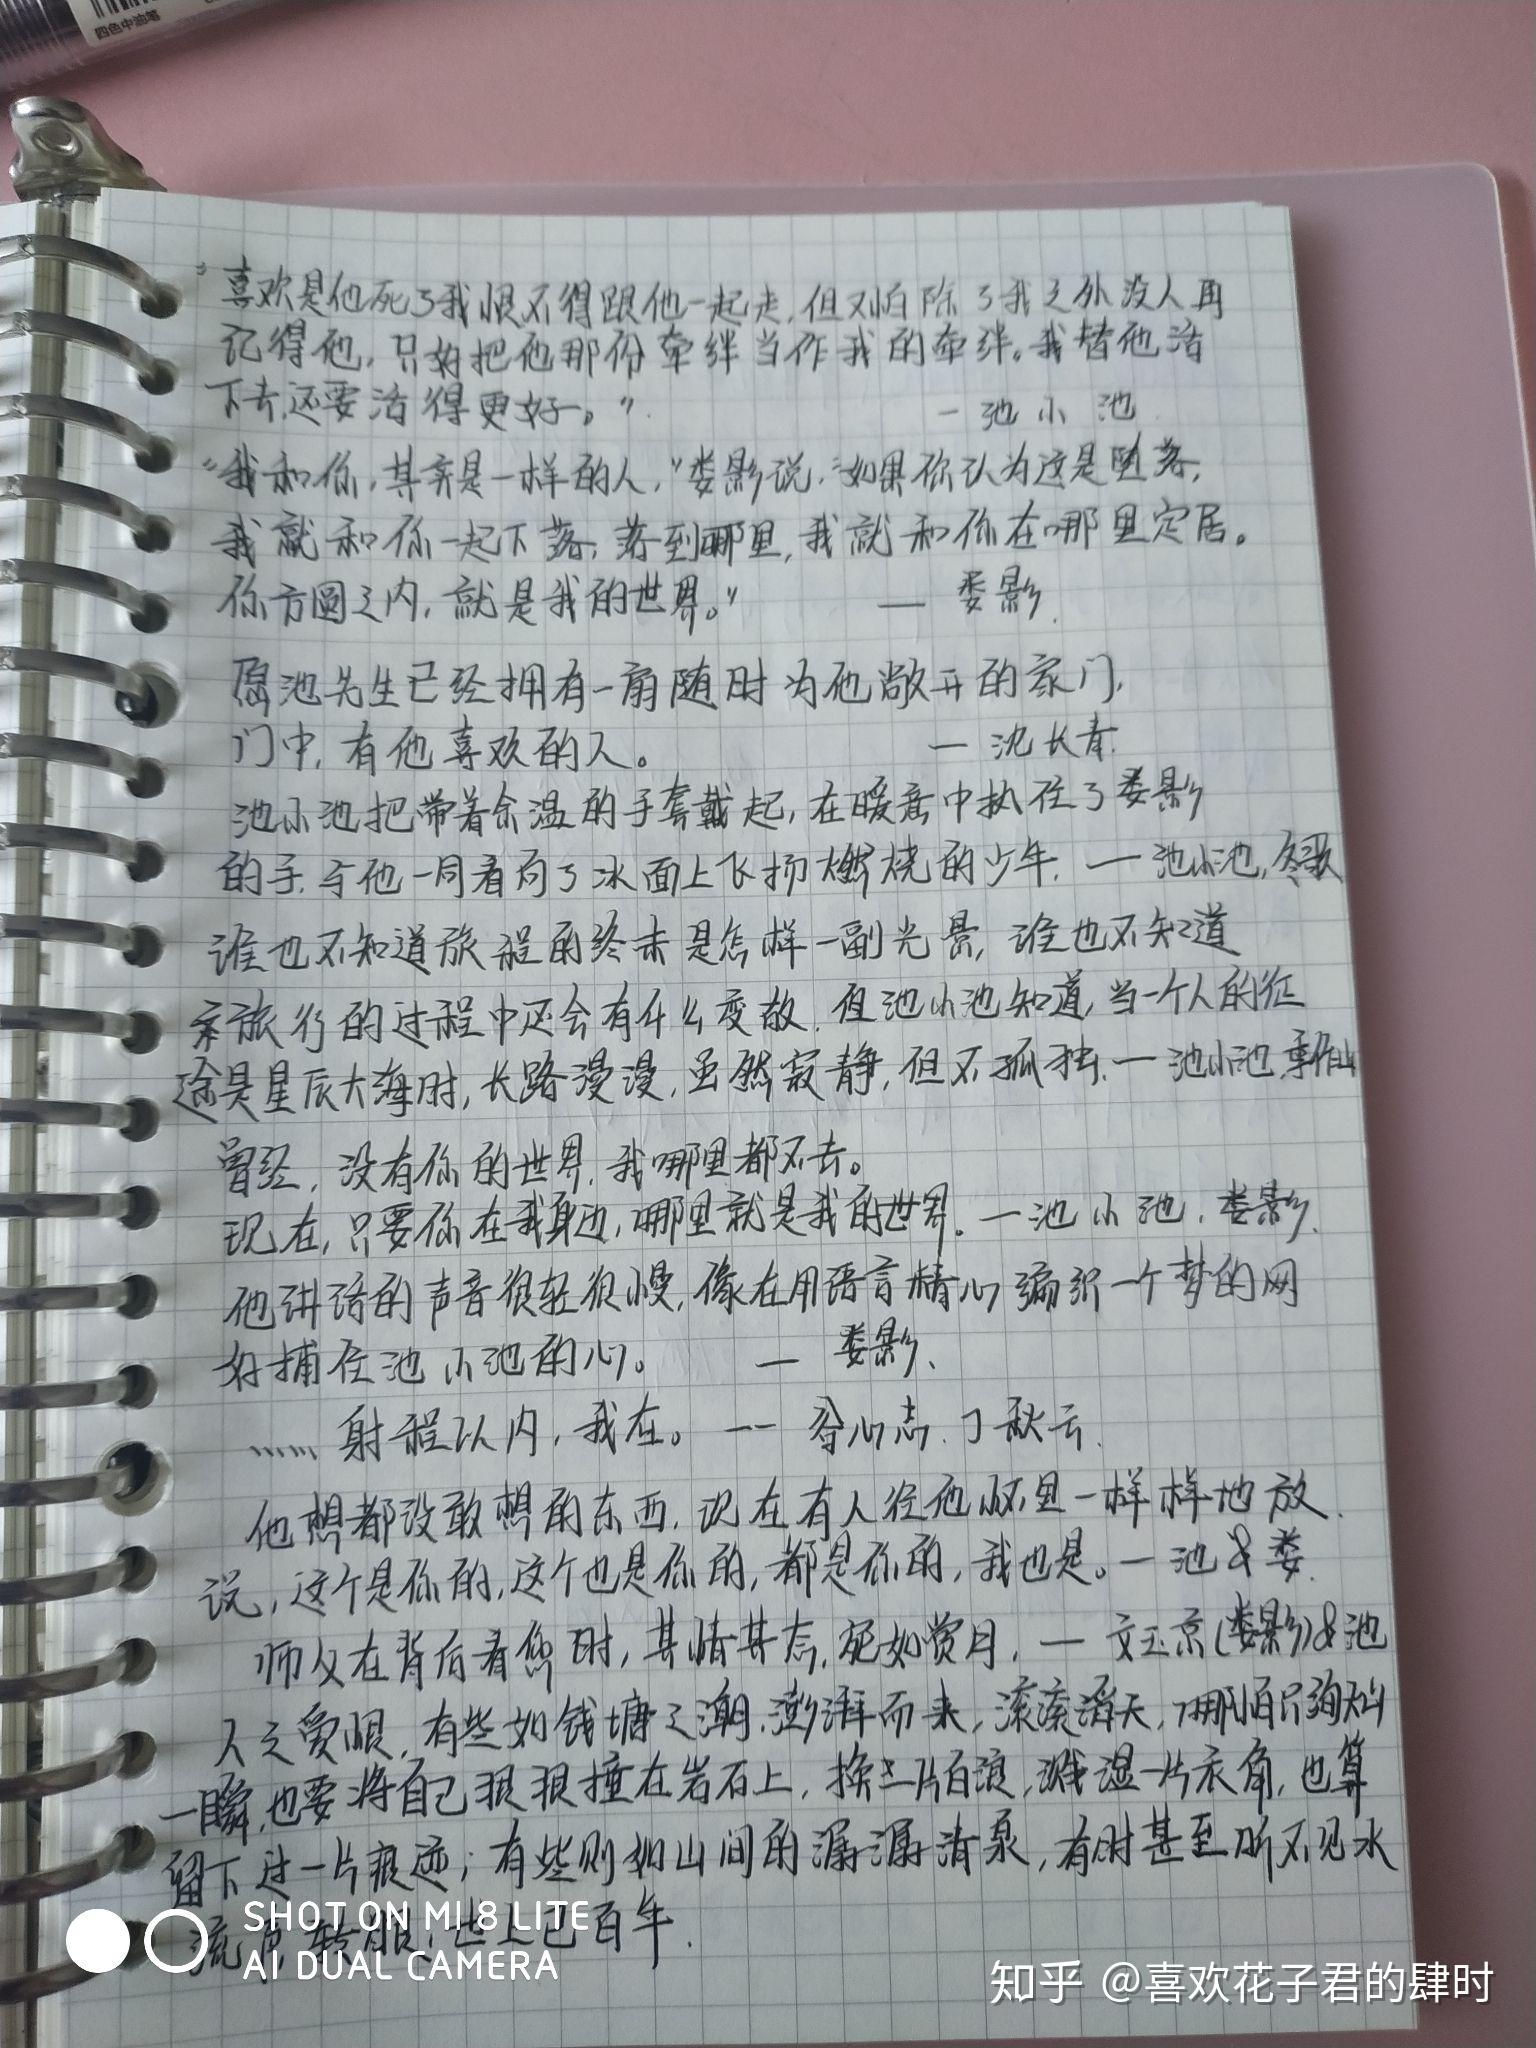 四色中油笔
"喜欢是他死了我恨不得跟他一起走,但又怕除了我之外没人再
记得他,只好把他那份牵绊当作我的牵绊。我替他活
下去,还要活得更好。" — 池小池
"我和你,其实是一样的人,"娄影说,"如果你认为这是堕落,
我就和你一起下落,落到哪里,我就和你在哪里定居。
你方圆之内,就是我的世界。" — 娄影
愿池先生已经拥有一扇随时为他敞开的家门,
门中,有他喜欢的人。 — 沈长青
池小池把带着余温的手套戴起,在暖意中执住了娄影
的手,与他一同看向了冰面上飞扬燃烧的少年. — 池小池,冬歌
谁也不知道旅程的终末是怎样一副光景,谁也不知道
旅行的过程中还会有什么变故,但池小池知道,当一个人的征
途是星辰大海时,长路漫漫,虽然寂静,但不孤独. — 池小池,季作山
曾经,没有你的世界,我哪里都不去。
现在,只要你在我身边,哪里就是我的世界。 — 池小池,娄影
他讲话的声音很轻很慢,像在用语言精心编织一个梦的网
好捕住池小池的心。 — 娄影
……射程以内,我在。 — 谷心志.丁秋云
他想都没敢想的东西,现在有人往他怀里一样样地放.
说,这个是你的,这个也是你的,都是你的,我也是。— 池&娄
师父在背后看您时,其情其态,宛如赏月. — 文玉京(娄影)&池
人之爱恨,有些如钱塘之潮,澎湃而来,滚滚滔天,哪怕只绚烂
一瞬,也要将自己狠狠撞在岩石上,换一片白浪,溅湿一片衣角,也算
留下过一片痕迹;有些则如山间的潺潺清泉,有时甚至听不见水
流声,转眼,世上已百年.
SHOT ON MI 8 LITE
AI DUAL CAMERA
知乎 @喜欢花子君的肆时